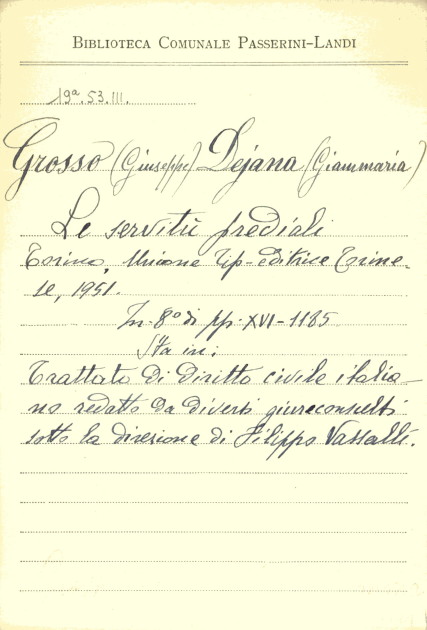 BIBLIOTECA COMUNALE PASSERINI-LANDI
19ª.53.III.
Grosso (Giuseppe) Dejana (Giammaria)
Le servitù prediali
Torino, Unione Tip-editrice Torine-
se, 1951.
In-8º di pp. XVI-1185
Sta in:
Trattato di diritto civile italia-
no redatto da diversi giureconsulti
sotto la direzione di Filippo Vassalli.